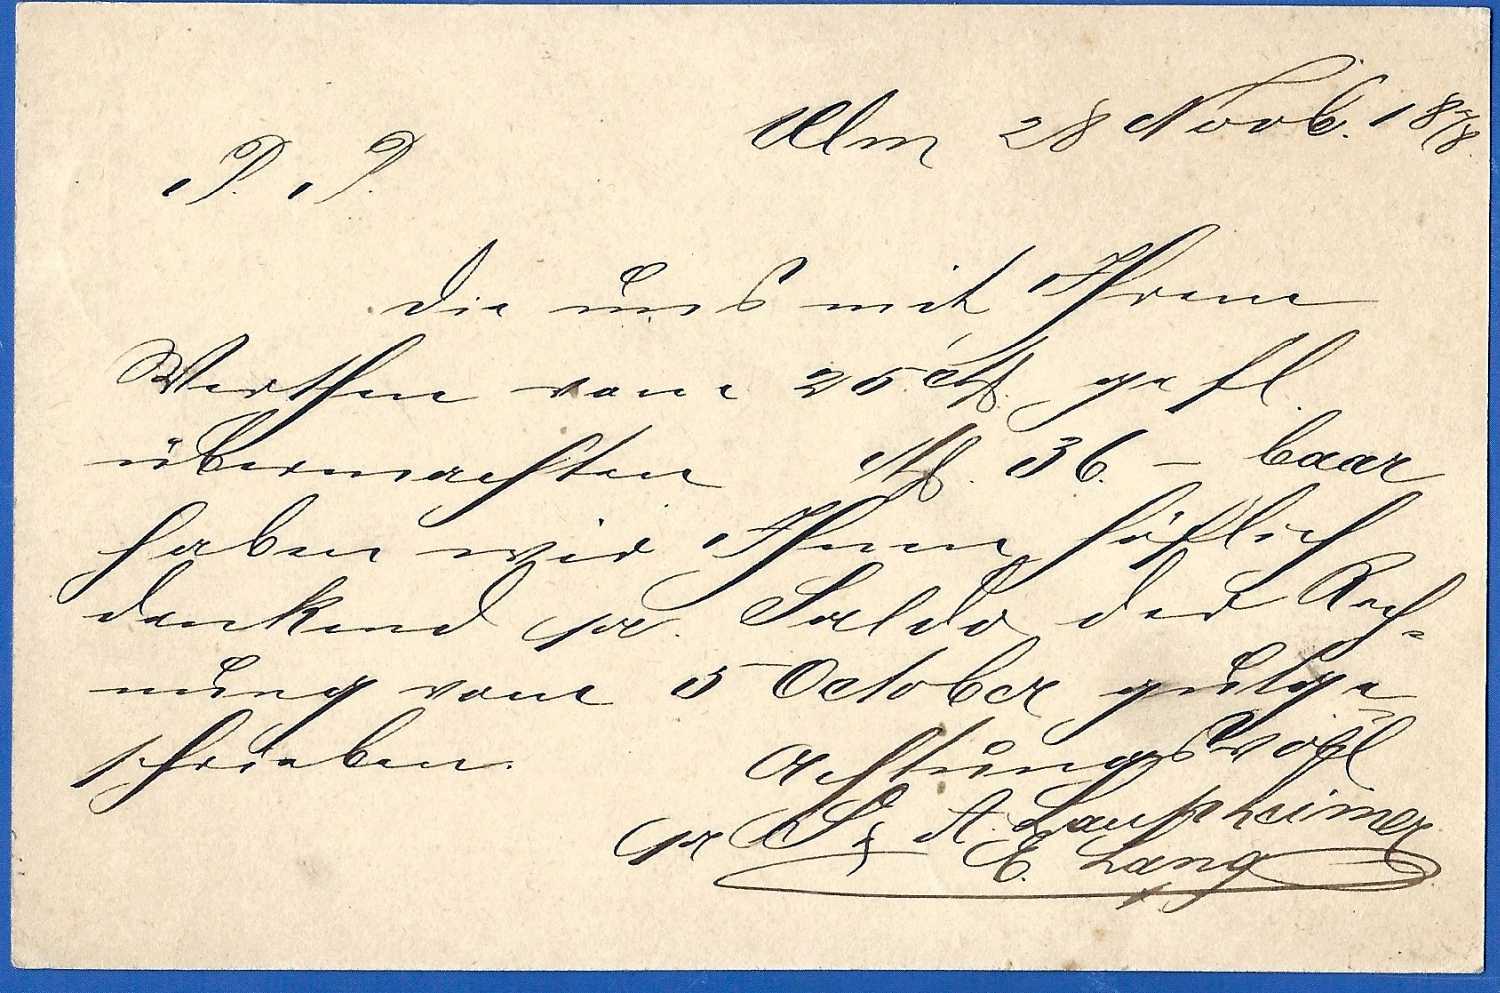 Ulm 28 Novb. 1878.
P. P.
Die uns mit Ihrem
Werthen vom 25. ct. gefl.
übermachten M. 36. – baar
haben wir Ihnen höflich
dankend pr. Saldo der Rech-
nung vom 5 October gutge-
schrieben.
Achtungsvoll
pr S & A. Laupheimer
E. Lang